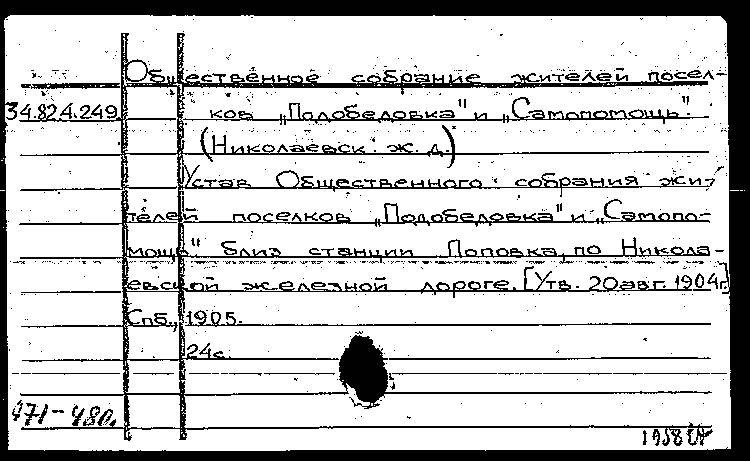 Общественное собрание жителей посел-
34.824.249. ков „Подобедовка" и „Самопомощь".
(Николаевск. ж. д.)
Устав Общественного собрания жи-
телей поселков „Подобедовка" и „Самопо-
мощь" близ станции Поповка, по Никола-
евской железной дороге. [Утв. 20 авг. 1904г.]
Спб., 1905.
24с.
471-480.
1958